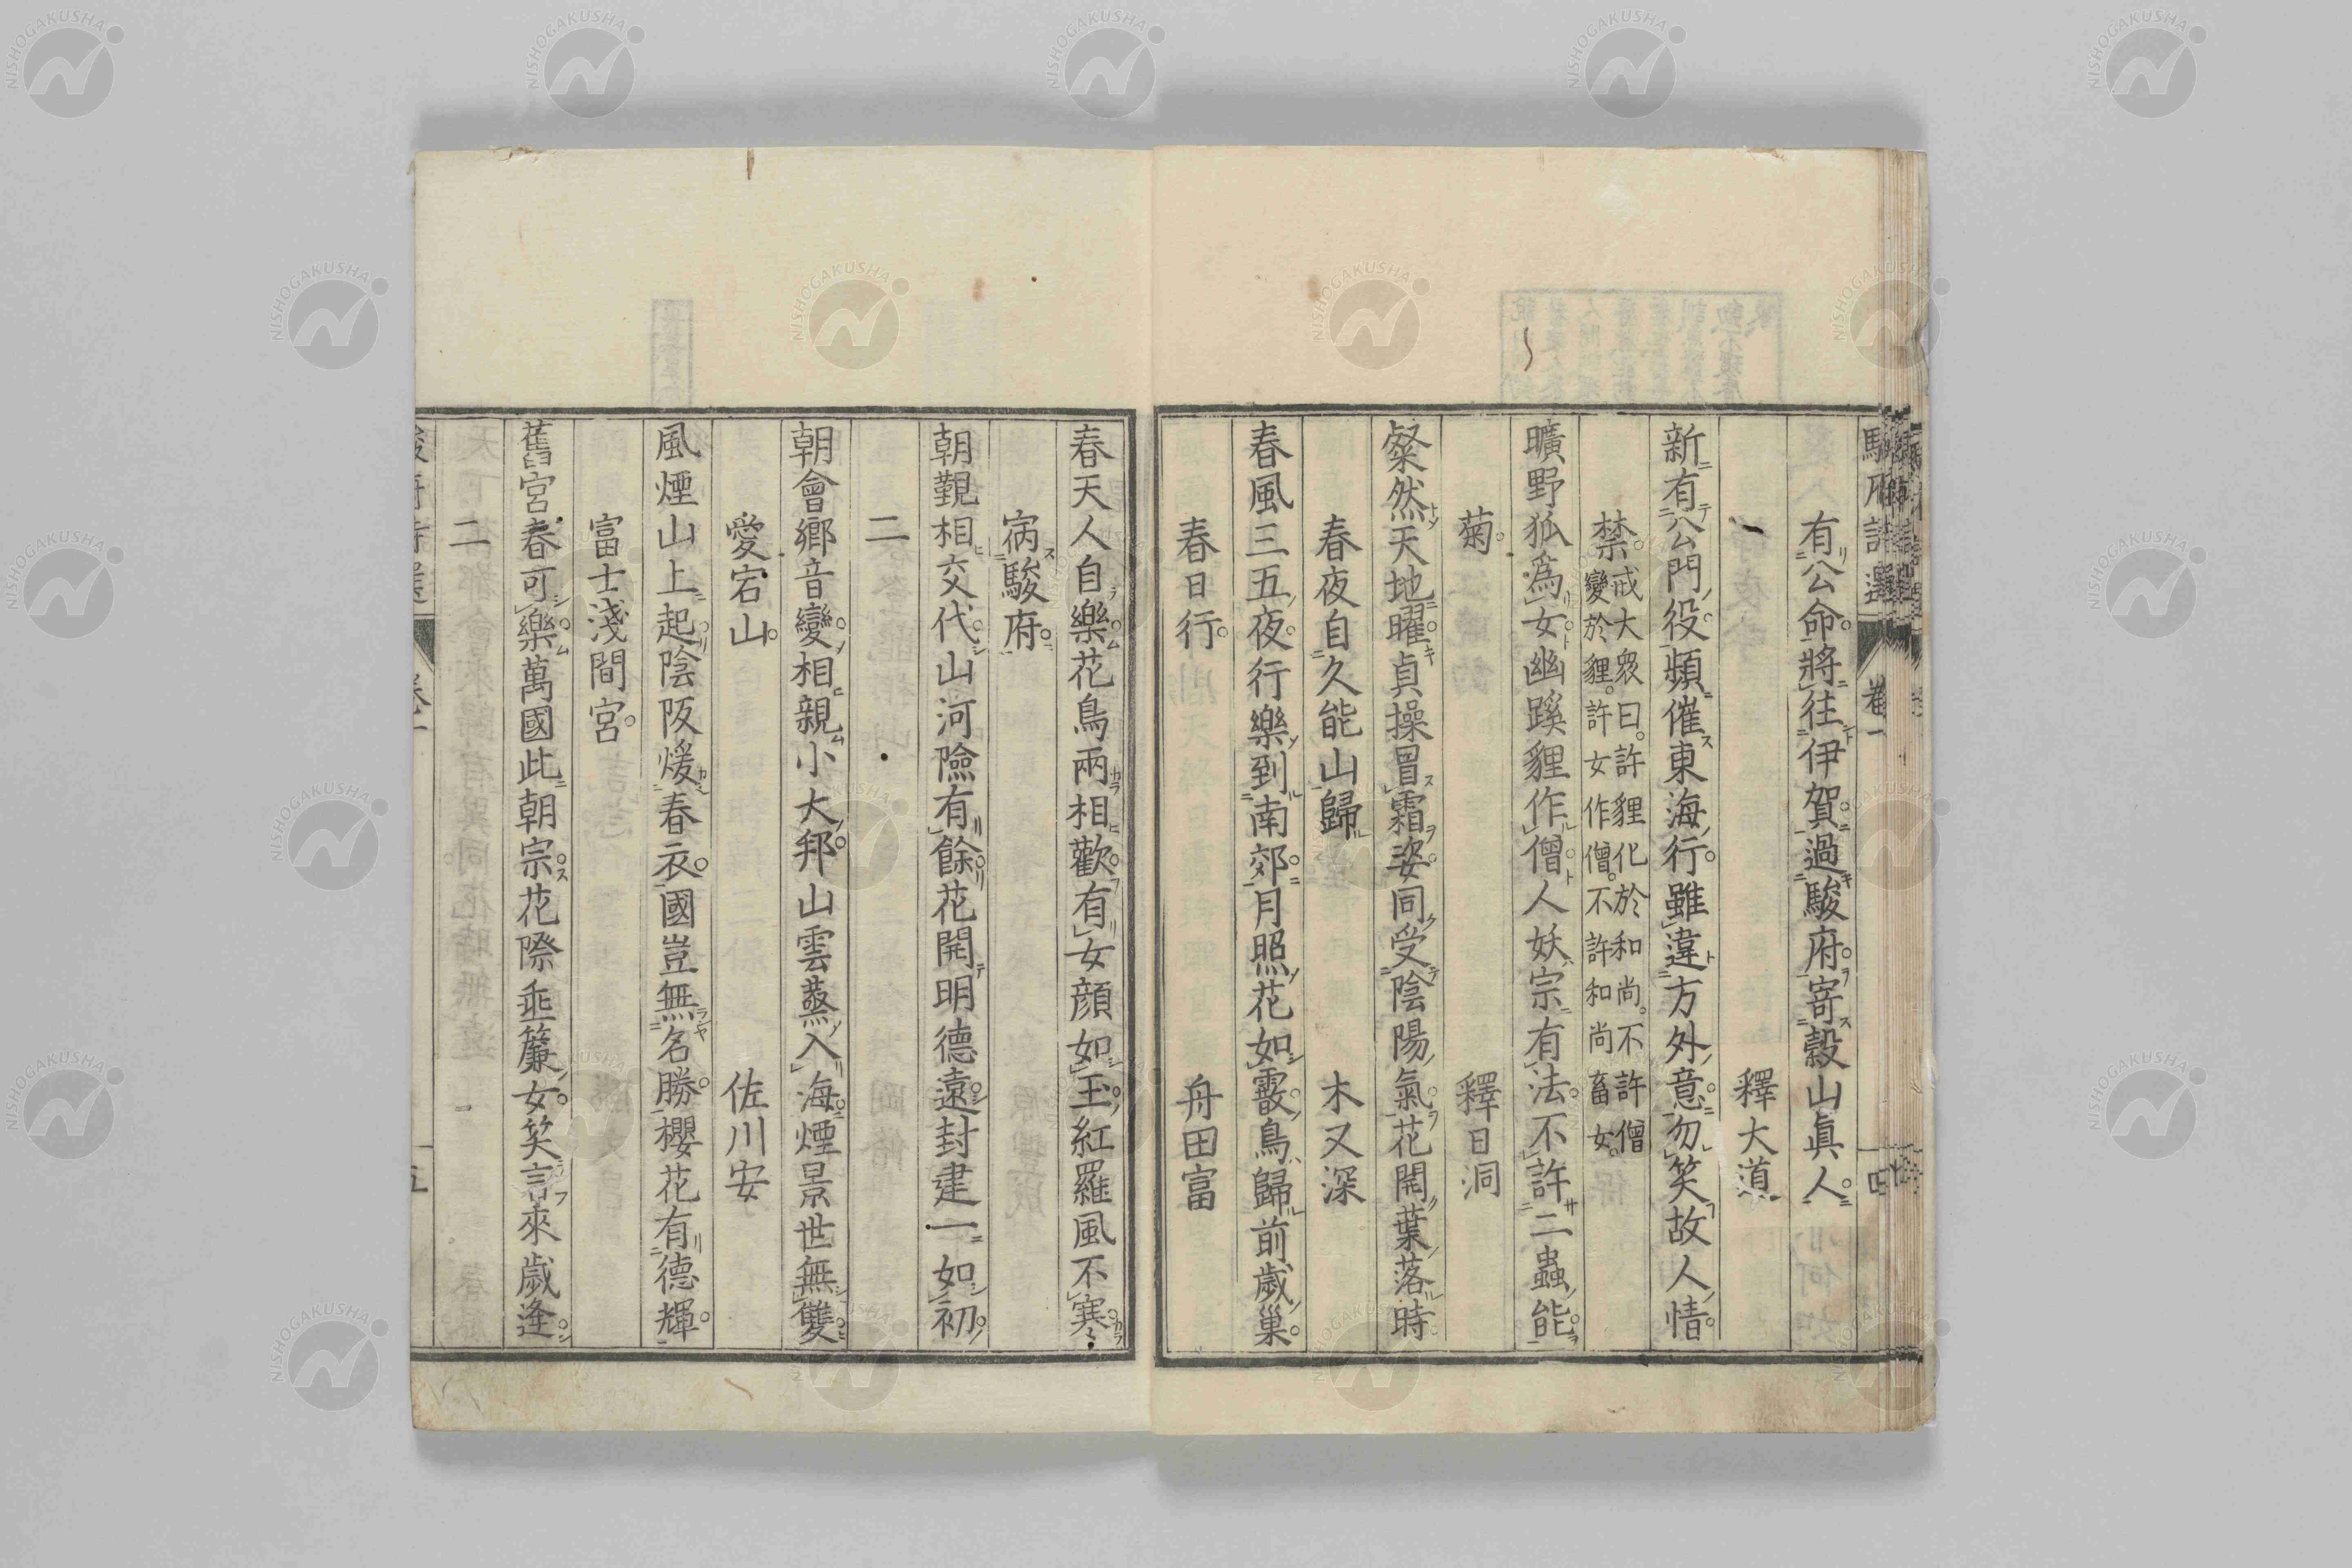 駿府詩選 卷一 四
有公命將往伊賀過駿府寄穀山眞人
釋大道
新有公門役頻催東海行雖違方外意勿笑故人情
禁戒大衆曰許貍化於和尚不許僧
變於貍許女作僧不許和尚畜女
曠野狐爲女幽蹊貍作僧人妖宗有法不許二蟲能
菊 釋日洞
粲然天地曜貞操冒霜姿同受陰陽氣花開葉落時
春夜自久能山歸 木又深
春風三五夜行樂到南郊月照花如霰鳥歸前歲巢
春日行 舟田富
春天人自樂花鳥兩相歡有女顔如玉紅羅風不寒
寓駿府
朝覲相交代山河險有餘花開明德遠封建一如初
二
朝會鄉音變相親小大邦山雲蒸入海煙景世無雙
愛宕山 佐川安
風煙山上起陰阪煖春衣國豈無名勝櫻花有德輝
富士淺間宮
舊宮春可樂萬國此朝宗花際垂簾女笑言來歲逢
二
NISHOGAKUSHA